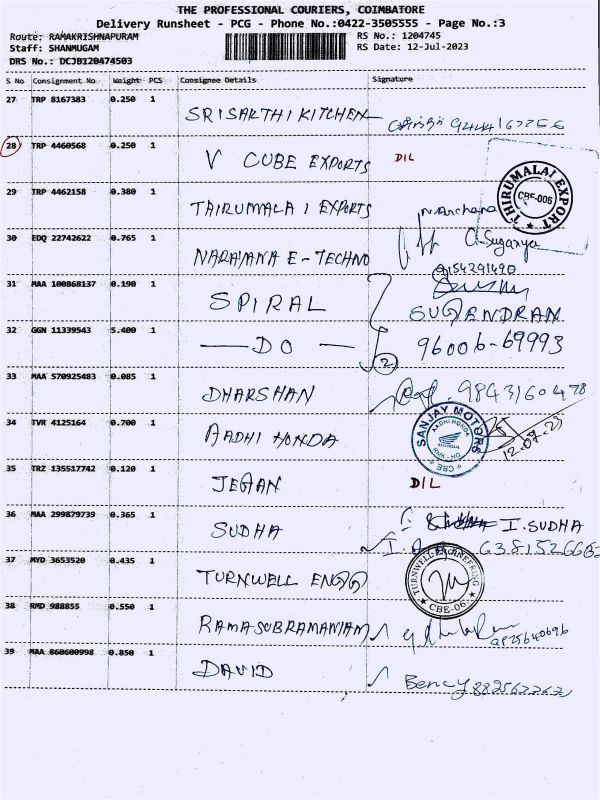 THE PROFESSIONAL COURIERS, COIMBATORE
Delivery Runsheet - PCG - Phone No.:0422-3505555 - Page No.:3
Route: RAMAKRISHNAPURAM
RS No.: 1204745
Staff: SHANMUGAM
RS Date: 12-Jul-2023
DRS No.: DCJB120474503
S No Consignment No Weight PCS Consignee Details Signature
27 TRP 8167383 0.250 1 SRISAKTHI KITCHEN
28 TRP 4460568 0.250 1 V CUBE EXPORTS DIL
THIRUMALAI EXPORT
CBE-006
29 TRP 4462158 0.380 1 TAIRUMALA I EXPORTS N. Archana
30 EDQ 22742622 0.765 1 NARAYANA E-TECHNO Suganya
9154291490
31 MAA 100868137 0.190 1 SPIRAL SUGENDRAN
32 GGN 11339543 5.400 1 DO 2 96006-69993
33 MAA 570925483 0.085 1 DHARSHAN 9843160478
34 TVR 4125164 0.700 1 AADHI HONDA
SANJAY MOTORS
AADHI HONDA
HONDA
CBE
12-07-23
35 TRZ 135517742 0.120 1 JEGAN DIL
36 MAA 299879739 0.365 1 SUDHA I. SUDHA
37 MYD 3653520 0.435 1 TURNWELL ENGG
TURNWELL ENGINEERING
CBE-06
38 RMD 988855 0.550 1 RAMASUBRAMANIAM
39 MAA 860600998 0.850 1 DAVID Bency